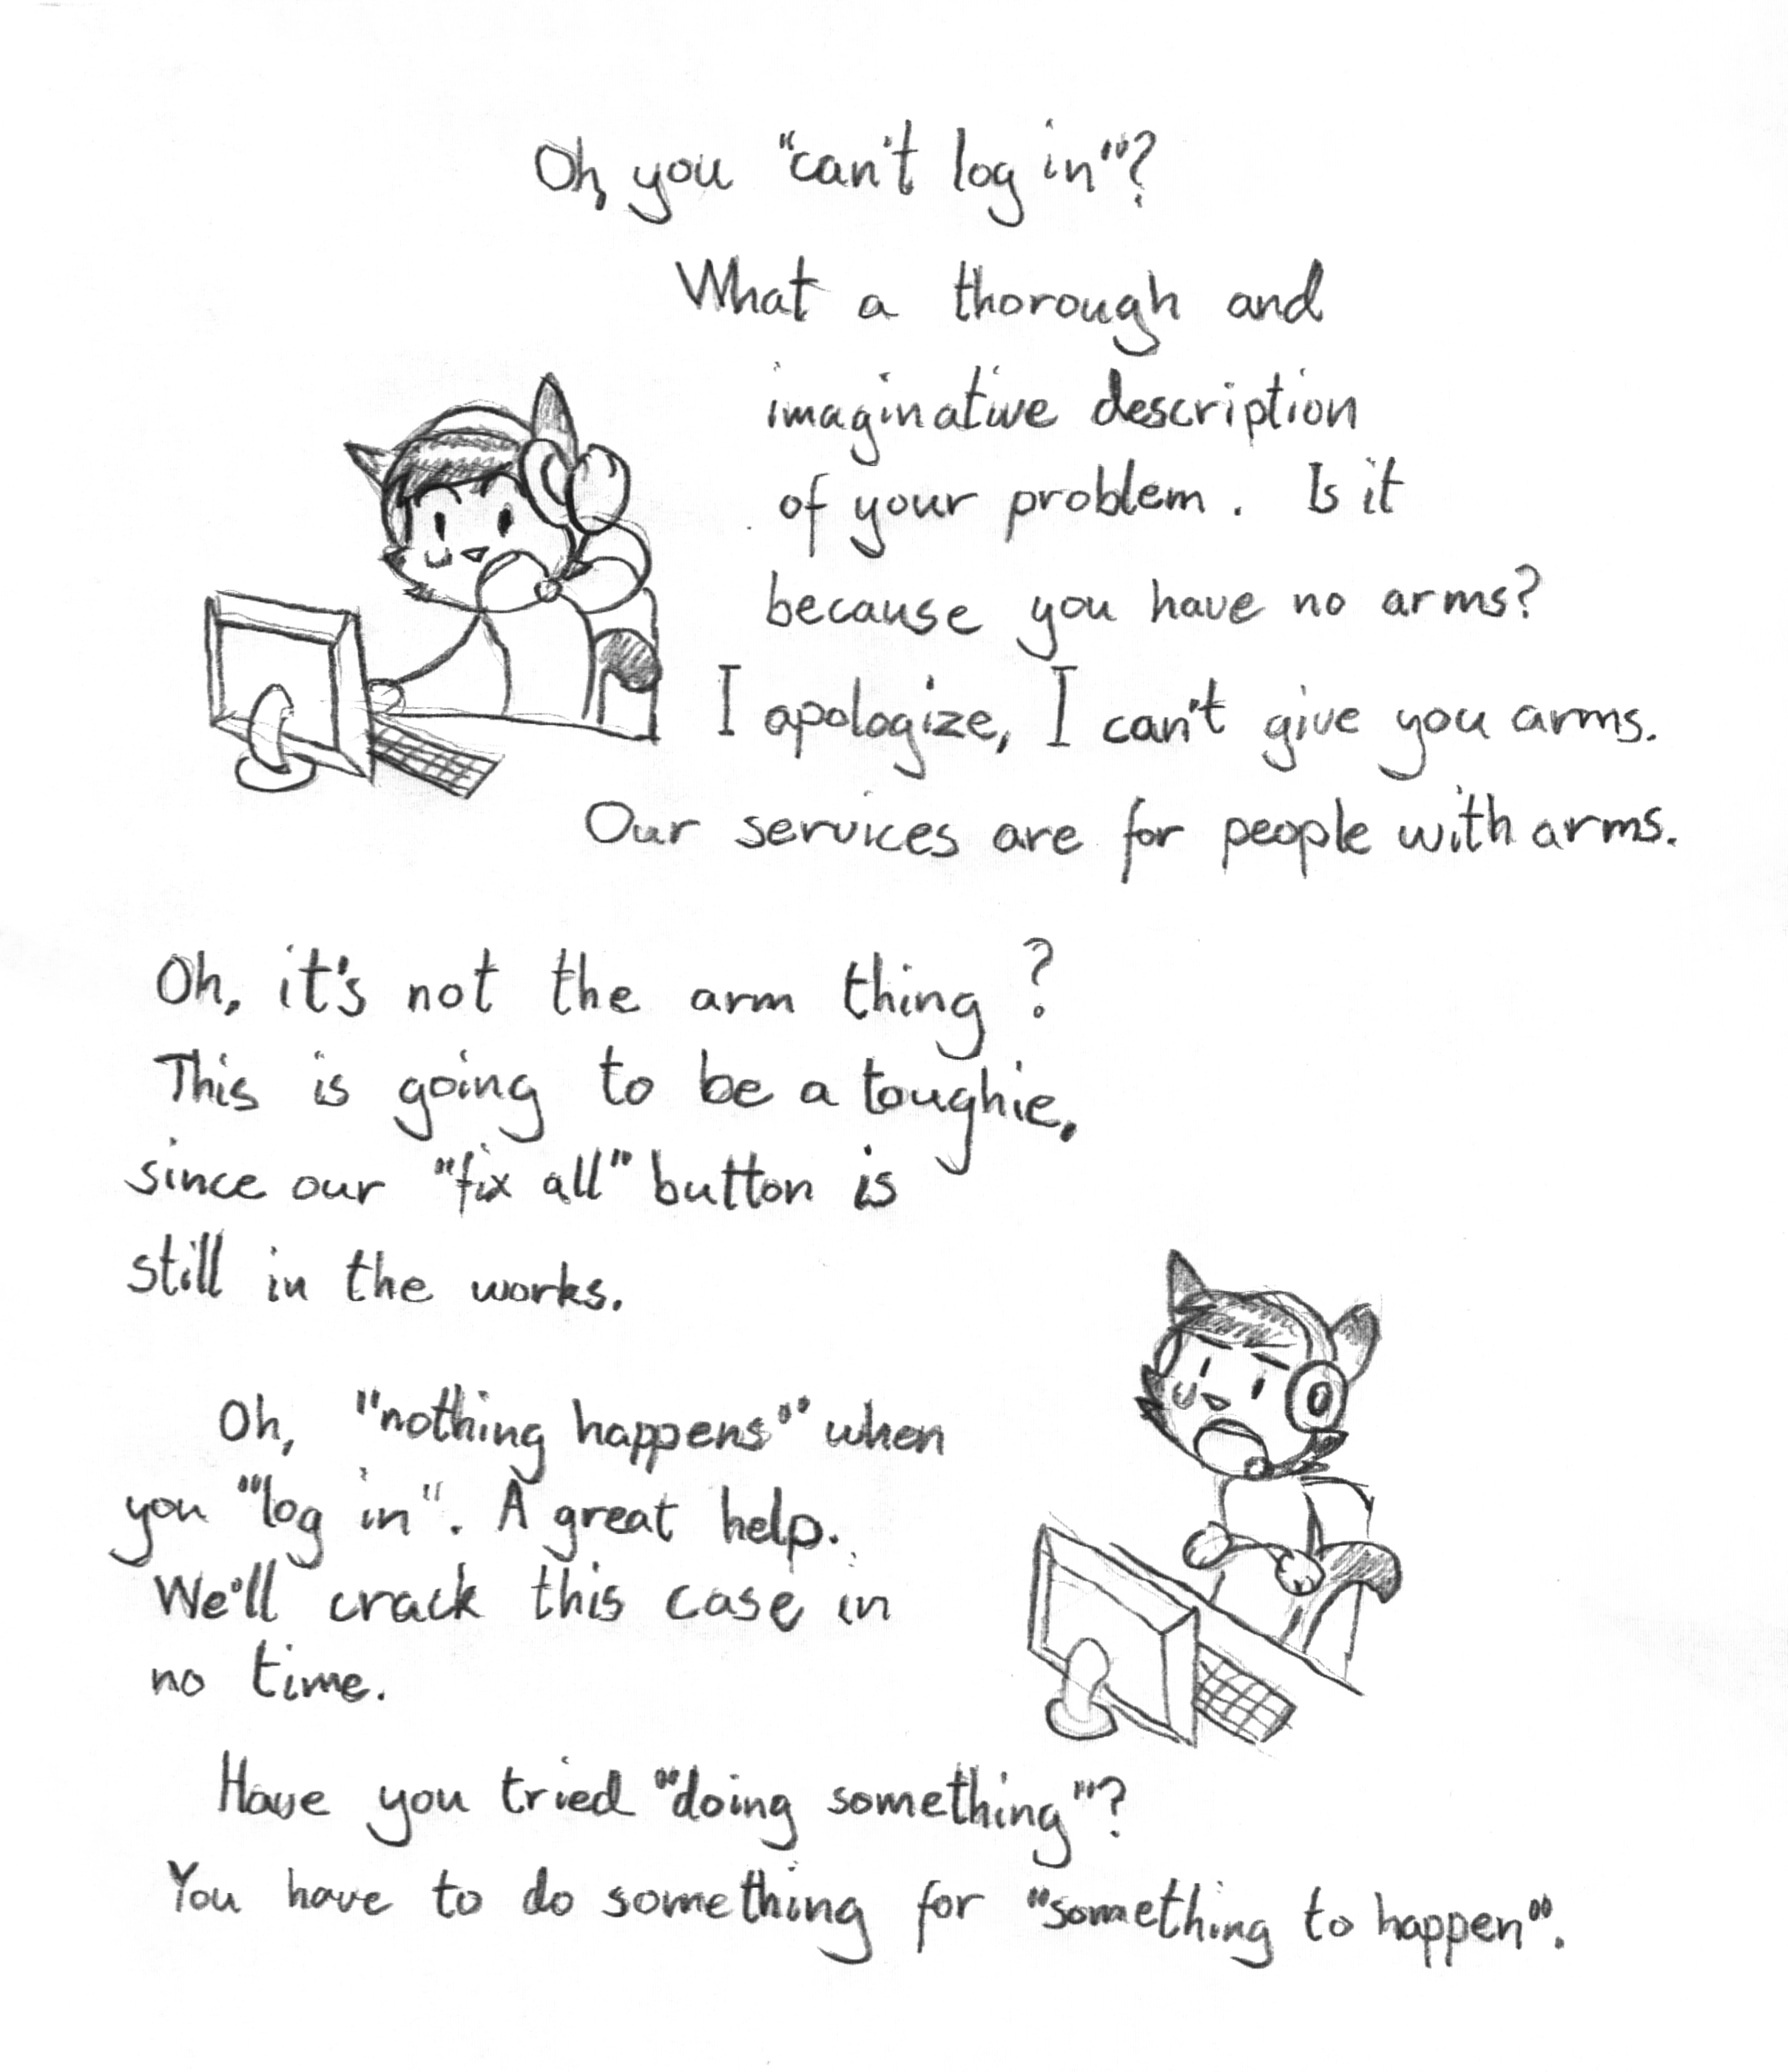 Oh, you "can't log in"?
What a thorough and
imaginative description
of your problem. Is it
because you have no arms?
I apologize, I can't give you arms.
Our services are for people with arms.
Oh, it's not the arm thing?
This is going to be a toughie,
since our "fix all" button is
still in the works.
Oh, "nothing happens" when
you "log in". A great help.
We'll crack this case in
no time.
Have you tried "doing something"?
You have to do something for "something to happen".